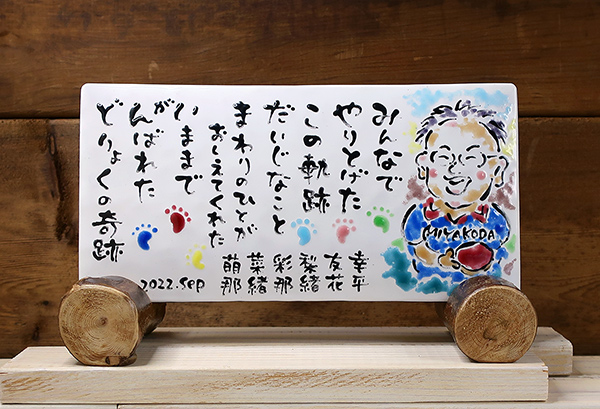 みんなで
やりとげた
この軌跡
だいじなこと
まわりのひとが
おしえてくれた
いままで
がんばれた
どりょくの奇跡
幸平
友花
梨緒
彩那
菜緒
萌那
2022.Sep
MIYAKODA